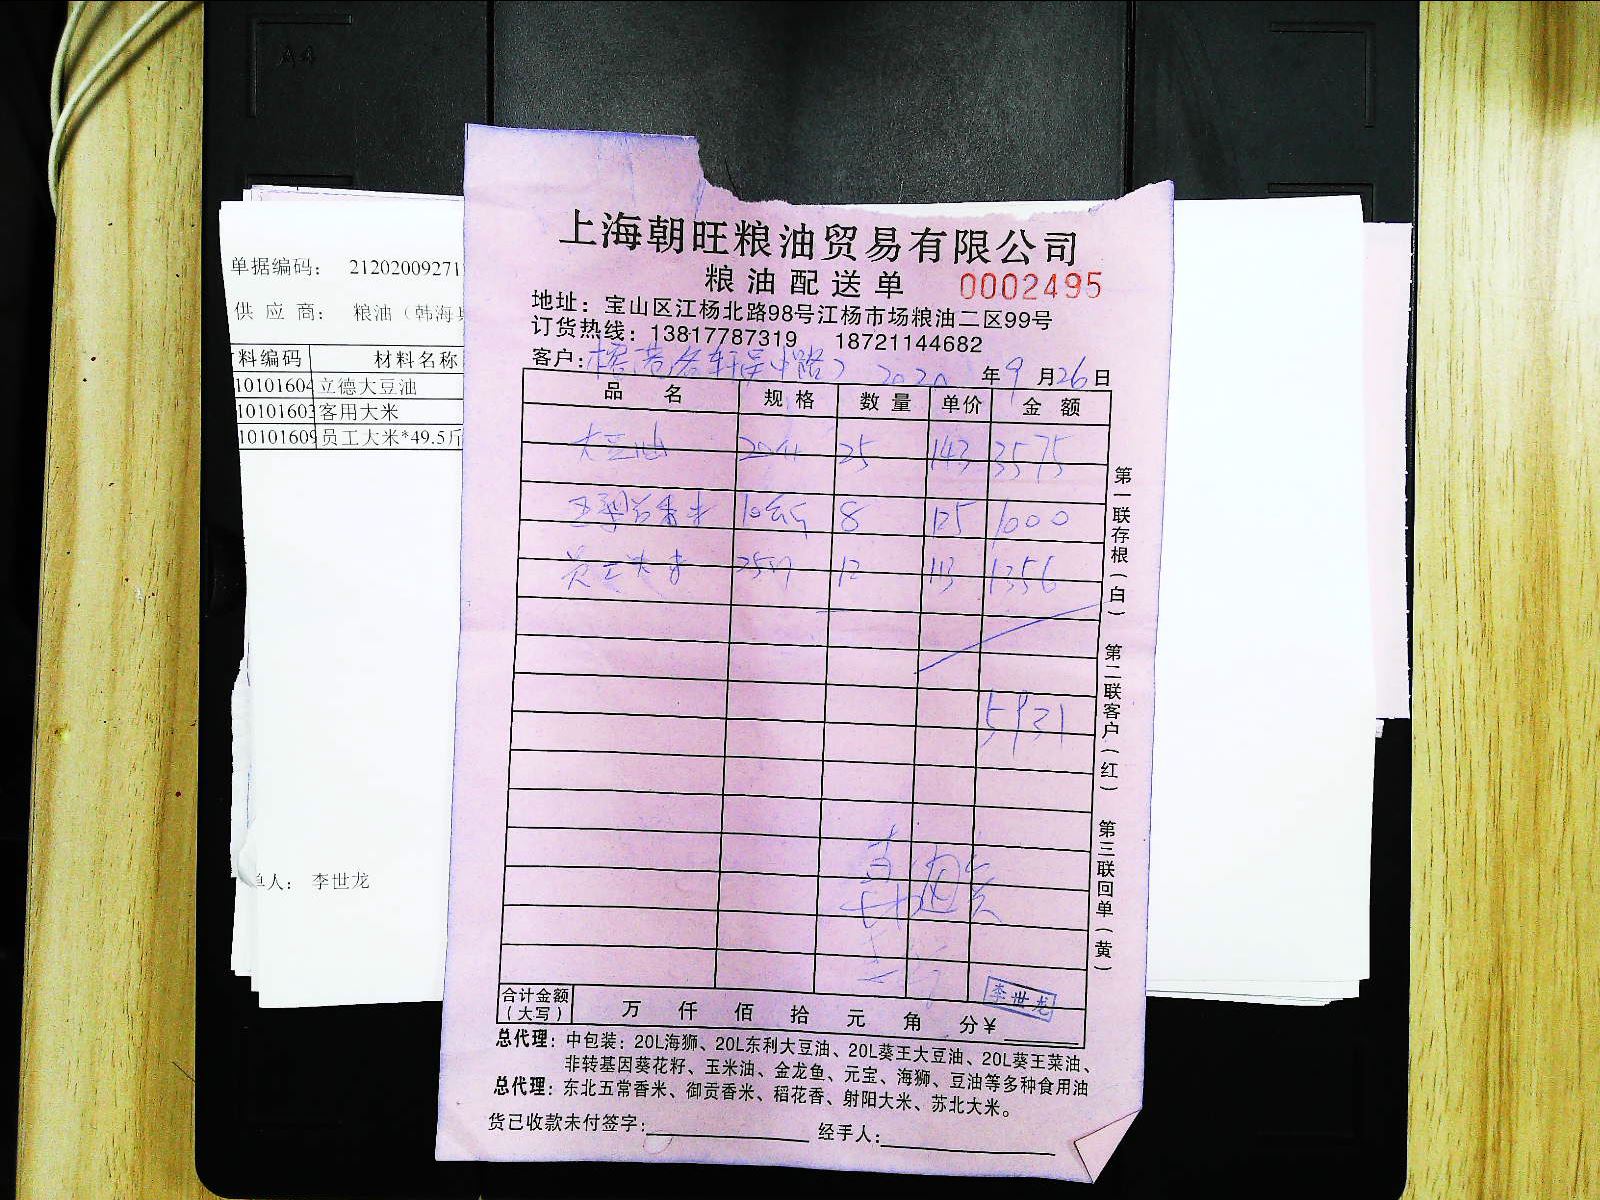 A4
单据编码： 21202009271
供 应 商： 粮油（韩海
料编码 材料名称
10101604 立德大豆油
10101603 客用大米
10101609 员工大米*49.5斤
单人： 李世龙
上海朝旺粮油贸易有限公司
粮油配送单 0002495
地址：宝山区江杨北路98号江杨市场粮油二区99号
订货热线：13817787319 18721144682
客户： 2020 年 9 月 26 日
品 名 规 格 数 量 单价 金 额
大豆油 25 143 3575
8 125 1000
员工大米 12 113 1356
5931
李世龙
合计金额（大写） 万 仟 佰 拾 元 角 分￥
总代理：中包装：20L海狮、20L东利大豆油、20L葵王大豆油、20L葵王菜油、
非转基因葵花籽、玉米油、金龙鱼、元宝、海狮、豆油等多种食用油
总代理：东北五常香米、御贡香米、稻花香、射阳大米、苏北大米。
货已收款未付签字： 经手人：
第一联存根（白）
第二联客户（红）
第三联回单（黄）